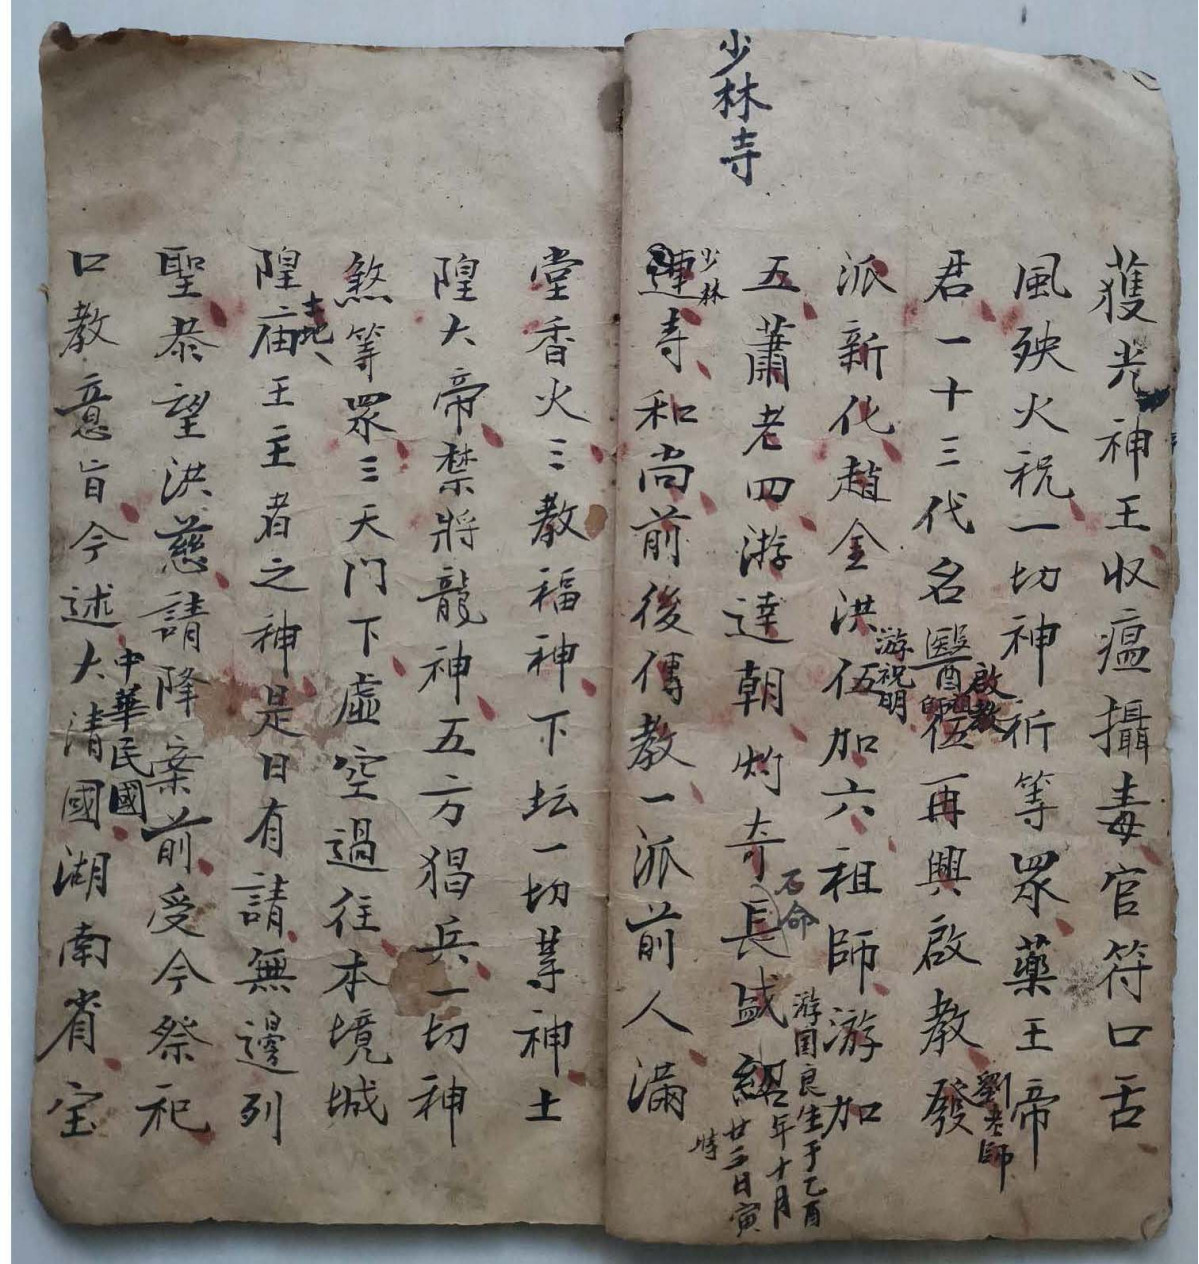 少林寺
獲光神王收瘟攝毒官符口舌
風殃火祝一切神祈等眾藥王帝
君一十三代名醫伍再興啟教發
啟教
師
劉老師
派新化趙金洪伍加六祖師游加
游祝明
五蕭老四游達朝灼奇長盛紹
石命
游国良生于乙酉
年十月
廿二日寅
時
蓮寺和尚前後傳教一派前人滿
少林
堂香火三教福神下坛一切等神土
隍大帝禁將龍神五方猖兵一切神
煞等眾三天門下虛空過往本境城
隍庙王主者之神是日有請無邊列
土地
聖恭望洪慈請降案前受今祭祀
口教意旨今述大清國湖南省宝
中華民國